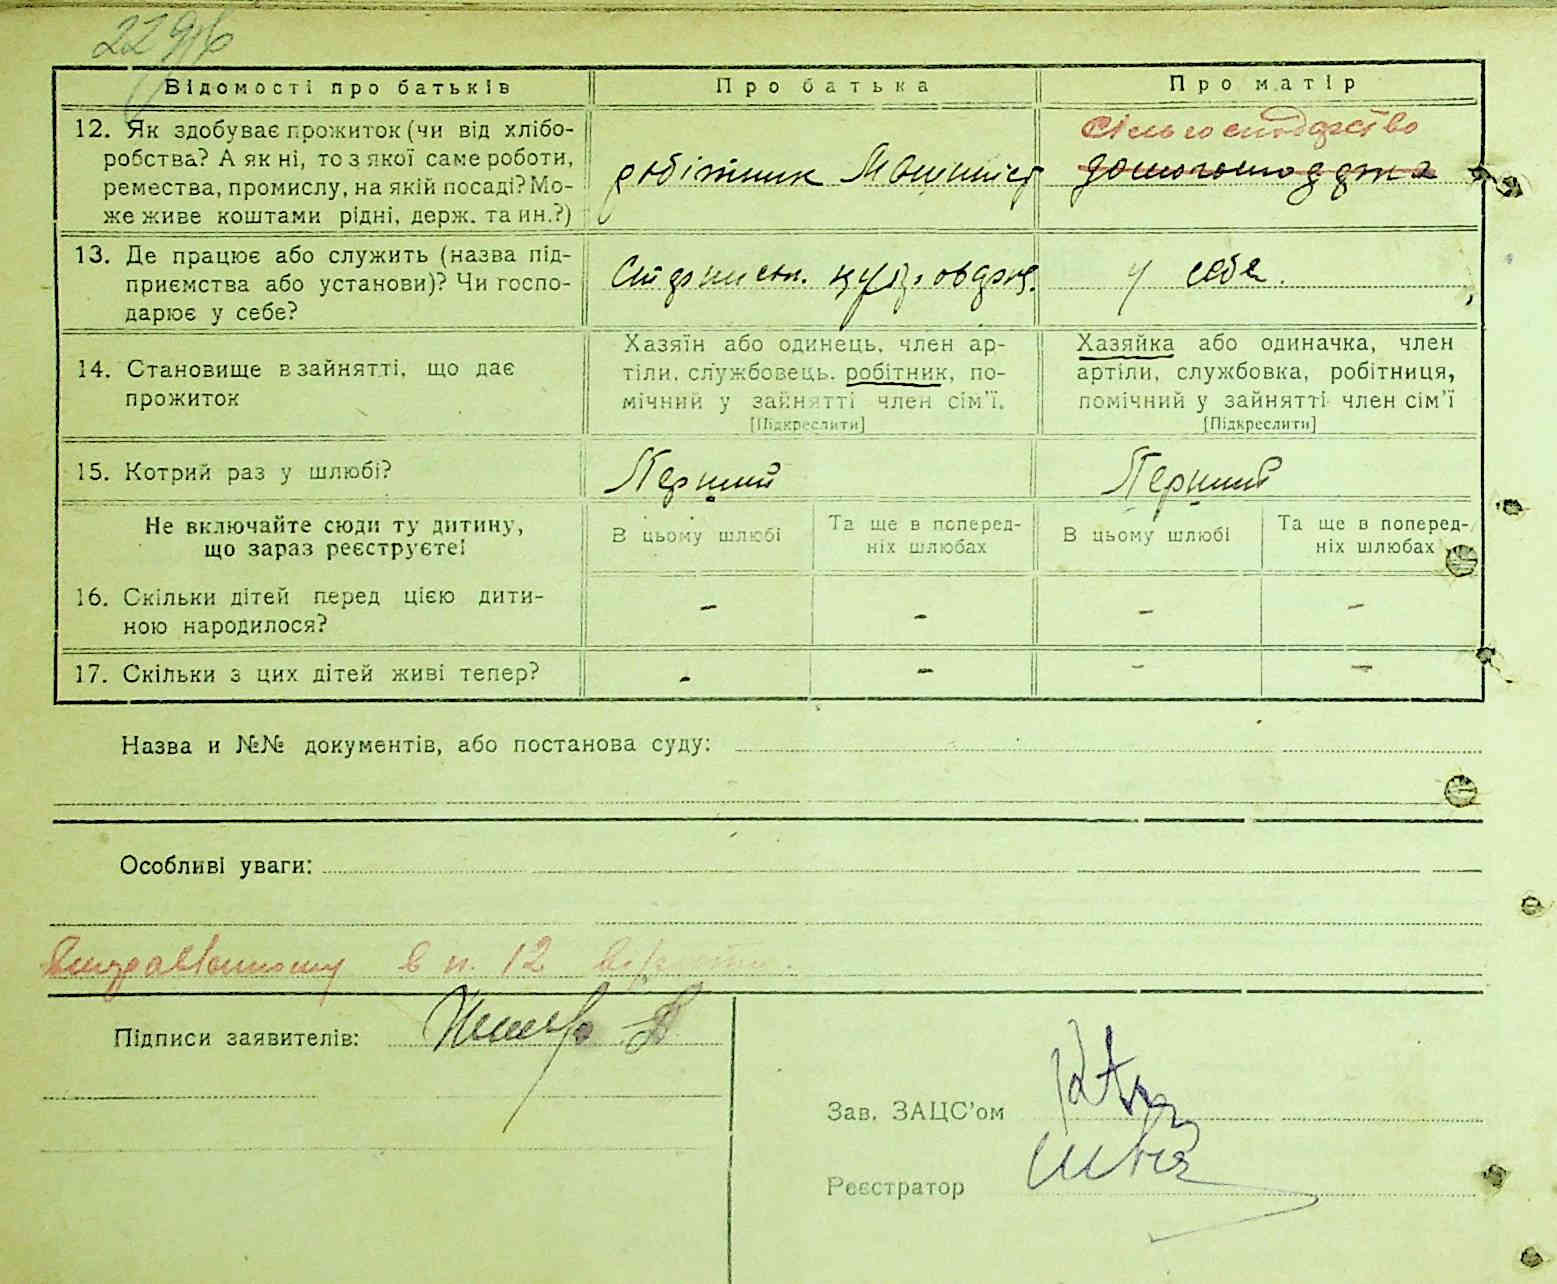 Відомості про батьків Про батька Про матір
12. Як здобуває прожиток (чи від хлібо-
робства? А як ні, то з якої саме роботи,
ремества, промислу, на якій посаді? Мо-
же живе коштами рідні, держ. та ин.?)
робітник Машиніст
сільгосподарство
13. Де працює або служить (назва під-
приємства або установи)? Чи госпо-
дарює у себе?
у себе.
14. Становище в зайнятті, що дає
прожиток
Хазяїн або одинець, член ар-
тіли, службовець, робітник, по-
мічний у зайнятті член сім'ї.
[Підкреслити]
Хазяйка або одиначка, член
артіли, службовка, робітниця,
помічний у зайнятті член сім'ї
[Підкреслити]
15. Котрий раз у шлюбі? Перший Перший
Не включайте сюди ту дитину,
що зараз реєструєте!
В цьому шлюбі
Та ще в поперед-
ніх шлюбах
В цьому шлюбі
Та ще в поперед-
ніх шлюбах
16. Скільки дітей перед цією дити-
ною народилося?
- - - -
17. Скільки з цих дітей живі тепер? - - - -
Назва и №№ документів, або постанова суду:
Особливі уваги:
в п. 12
Підписи заявителів:
Зав. ЗАЦС'ом
Реєстратор